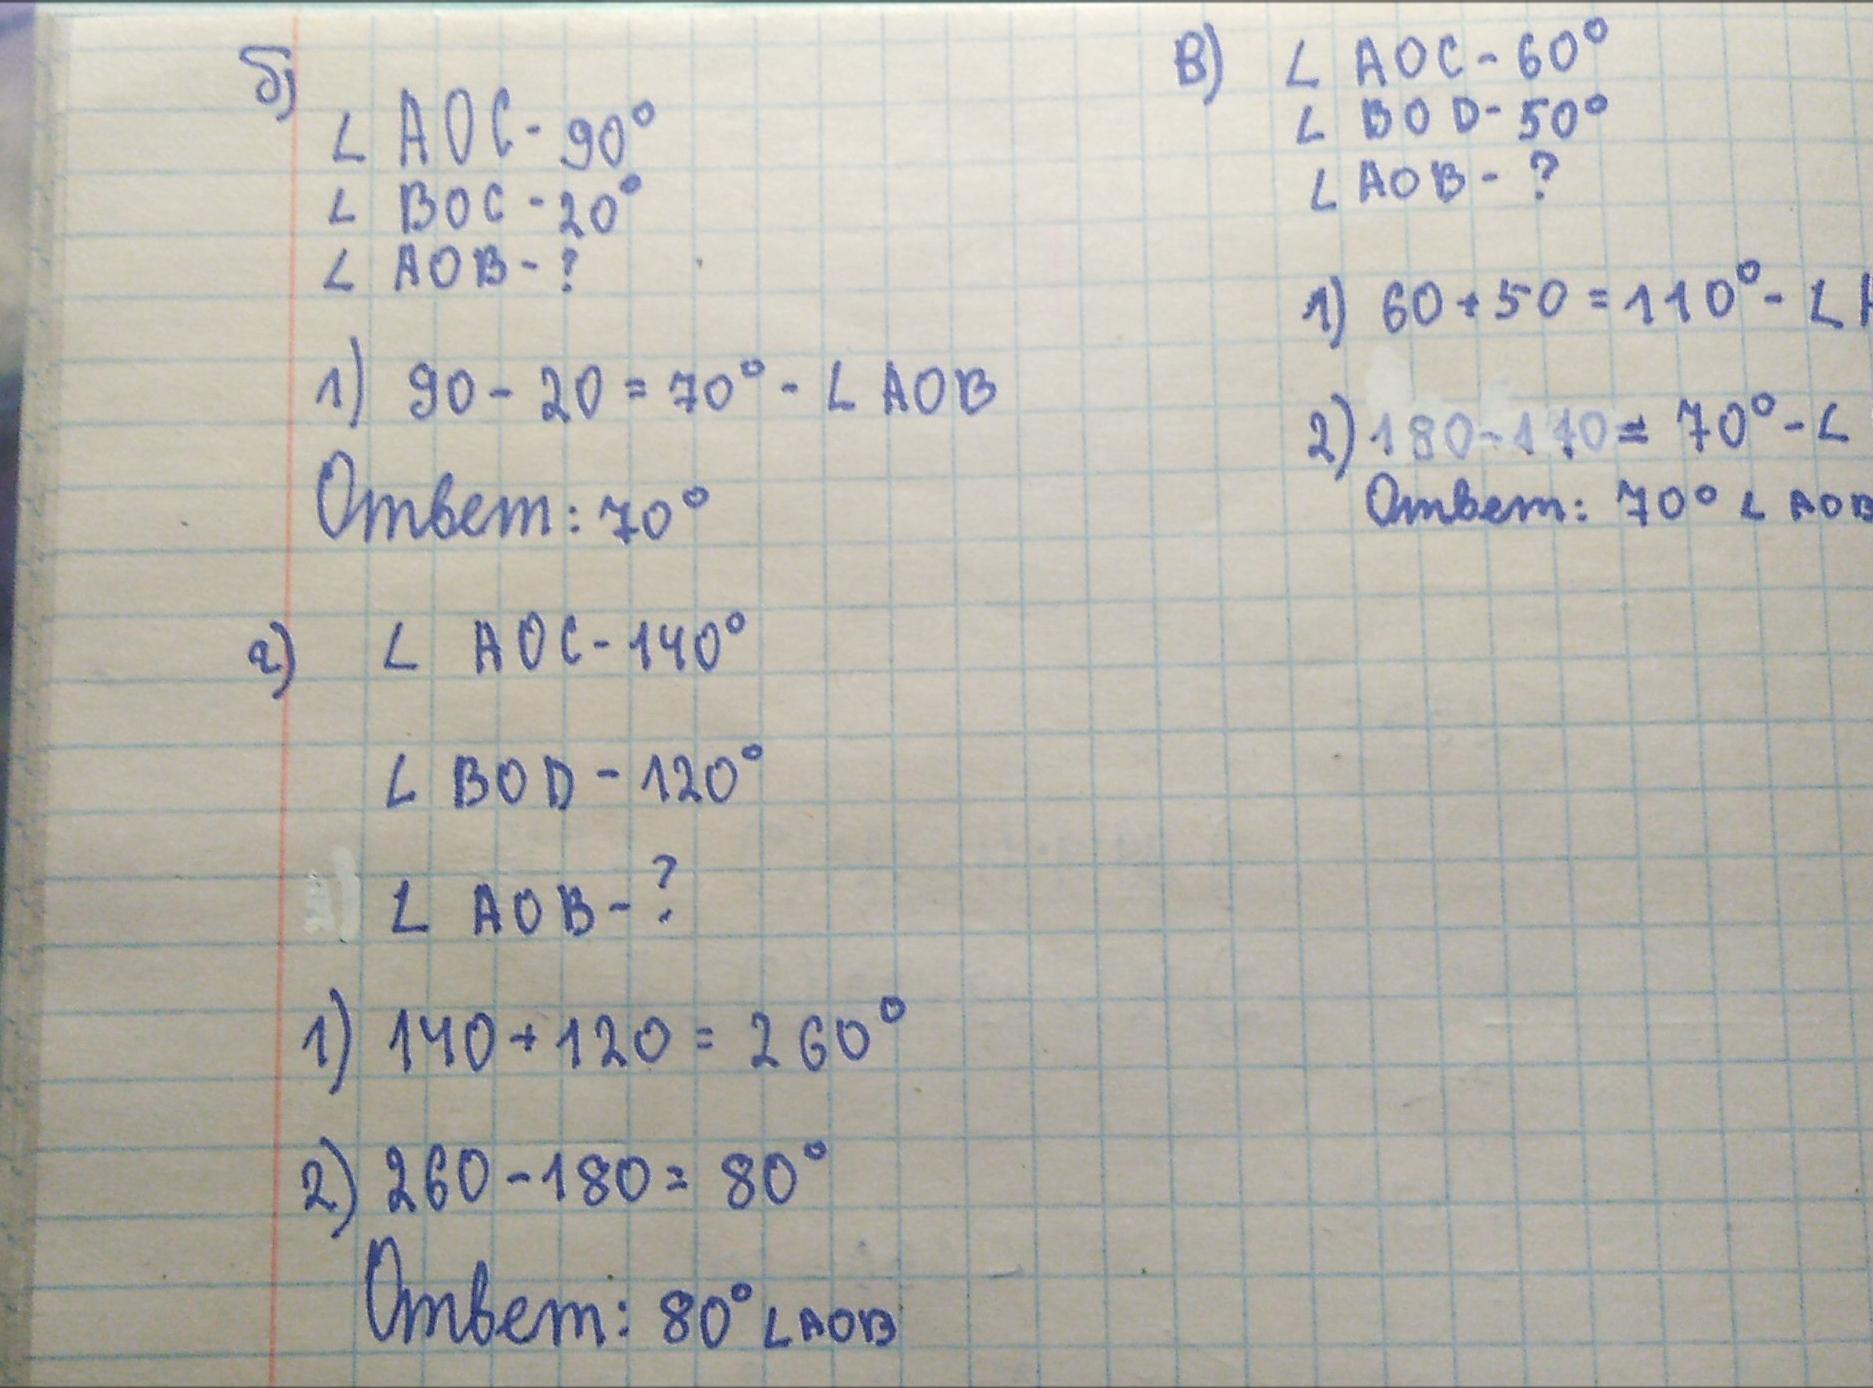 б)
∠ AOC - 90°
∠ BOC - 20°
∠ AOB - ?
1) 90 - 20 = 70° - ∠ AOB
Ответ: 70°
г) ∠ AOC - 140°
∠ BOD - 120°
∠ AOB - ?
1) 140 + 120 = 260°
2) 260 - 180 = 80°
Ответ: 80° ∠AOB
В) ∠ AOC - 60°
∠ BOD - 50°
∠ AOB - ?
1) 60 + 50 = 110° - ∠
2) 180 - 110 = 70° - ∠
Ответ: 70° ∠ AOB